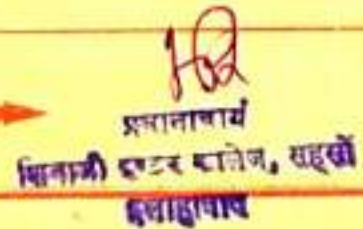 प्रधानाचार्य
शिवाजी इण्टर कालेज, सहसों
इलाहाबाद